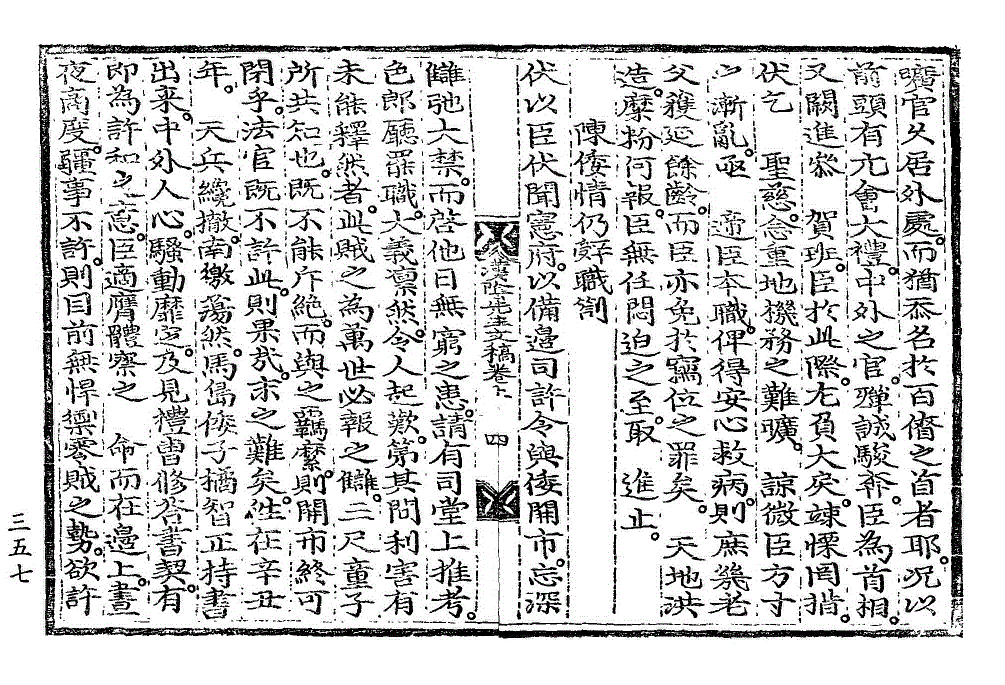 曠官久居外處。而猶忝名於百僚之首者耶。况以
前頭有元會大禮。中外之官。殫誠駿奔。臣爲首相。
又闕進參　賀班。臣於此際。尤負大戾。竦慄罔措。
伏乞　聖慈。念重地機務之難曠。　諒微臣方寸
之漸亂。亟　遞臣本職。俾得安心救病。則庶幾老
父獲延餘齡。而臣亦免於竊位之罪矣。　天地洪
造。糜粉何報。臣無任悶迫之至。取　進止。
陳倭情仍辭職箚
伏以臣伏聞憲府。以備邊司許令與倭開市。忘深
漢陰先生文稿卷下
四
讎弛大禁。而啓他日無窮之患。請有司堂上推考。
色郎廳罷職。大義凛然。令人起歎。第其間利害有
未能釋然者。此賊之爲萬世必報之讎。三尺童子
所共知也。既不能斥絶。而與之羈縻。則開市終可
閉乎。法官既不許此。則果哉。末之難矣。往在辛丑
年。　天兵纔撤。南徼蕩然。馬島倭子橘智正持書
出來。中外人心。騷動靡定。及見禮曹修答書契。有
即爲許和之意。臣適膺體察之　命而在邊上。晝
夜商度。疆事不許。則目前無捍禦零賊之勢。欲許
三五七